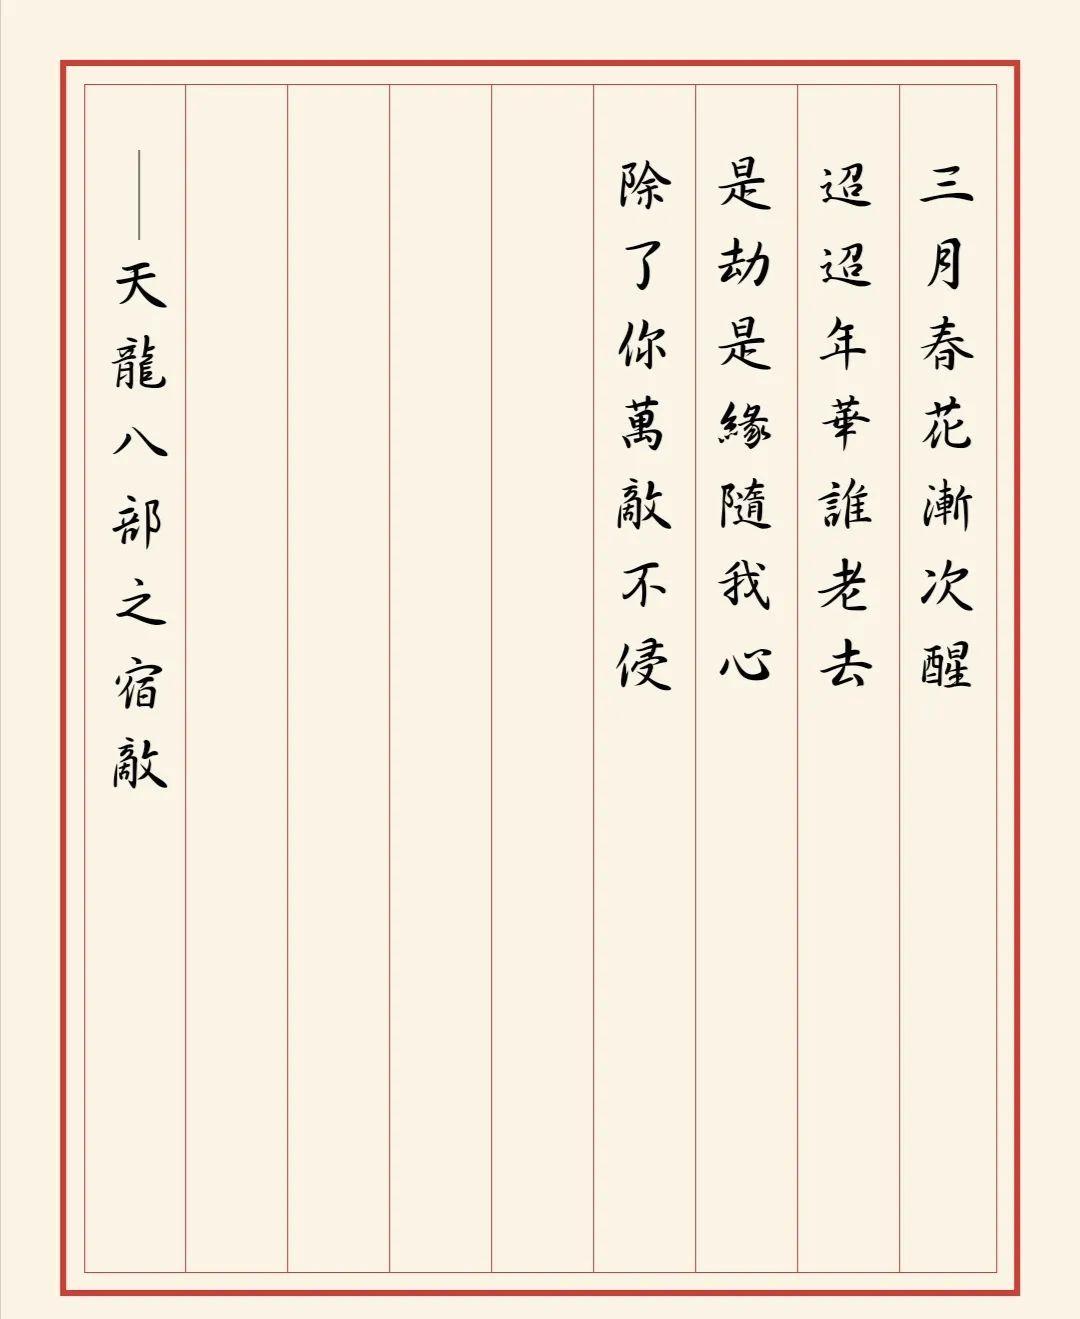 三月春花漸次醒
迢迢年華誰老去
是劫是緣隨我心
除了你萬敵不侵
——天龍八部之宿敵